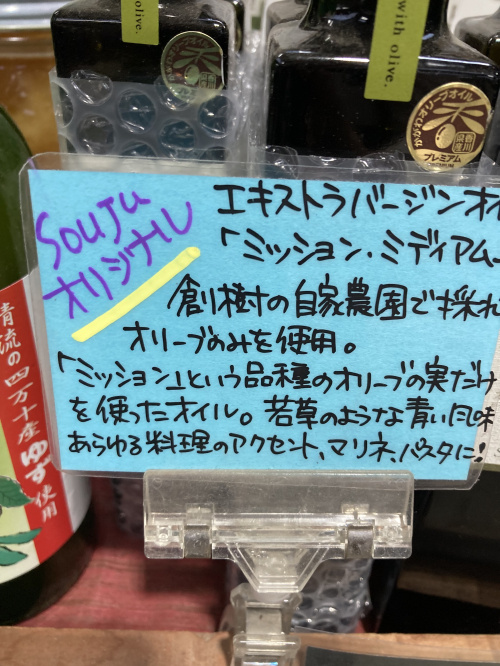 olive.
with olive.
かがわオリーブオイル
香川県産
プレミアム
PREMIUM
souju
オリジナル
エキストラバージンオ
「ミッション・ミディアム
創樹の自家農園で採れ
オリーブのみを使用。
「ミッション」という品種のオリーブの実だけ
を使ったオイル。若草のような青い風味
あらゆる料理のアクセント、マリネ、パスタに!
清流の四万十産ゆず使用